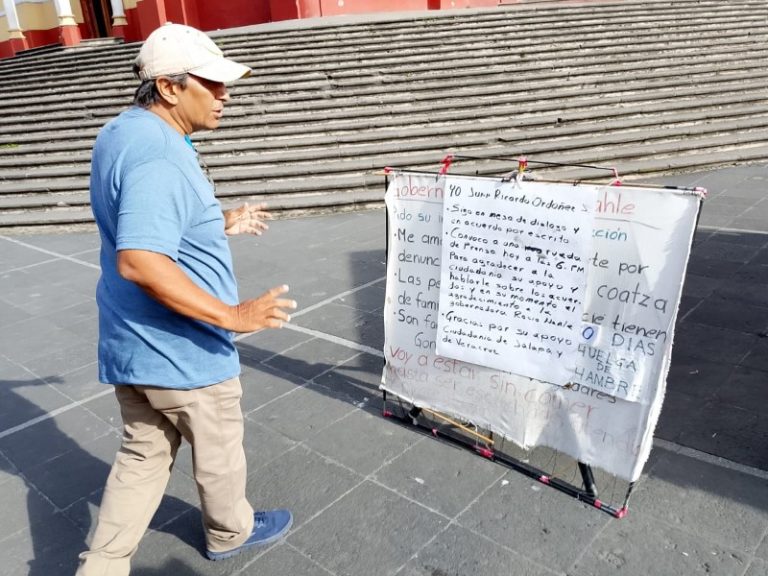 Gobern
ahle
Pido su
cción
• Me am
te por
denunc
coatza
• Las pe
cie tienen
de fam
0 DIAS
• Son fam
HUELGA
DE
HAMBRE
Gob
ares
Voy a estar sin comer
hasta ser es
YO Juan Ricardo Ordoñez
• Sigo en mesa de dialogo y
un acuerdo por escrito
• Convoco a una rueda
de Prensa hoy a las 6. PM
Para agradecer a la
ciudadania su apoyo y
hablarle sobre los acuer
dos y en su momento el
agradecimiento a la
gobernadora Rocio Nahle
• Gracias por su apoyo
Ciudadania de Jalapa y
de Veracruz